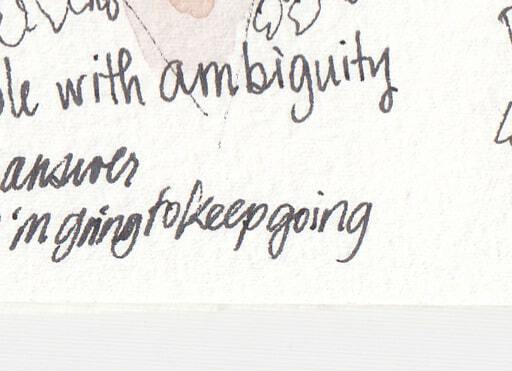 ble with ambiguity
answer
'm going to keep going